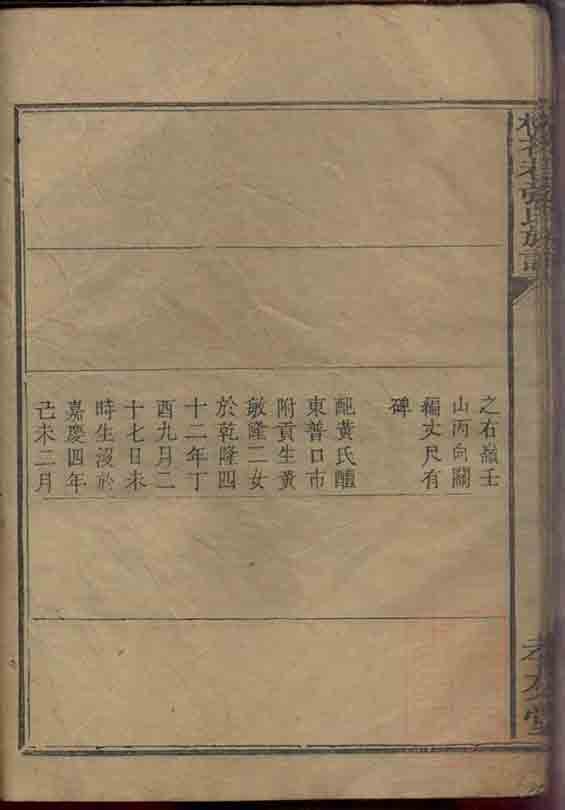 之右嶺壬
山丙向關
編丈尺有
碑
配黃氏醴
東普口市
附貢生黃
敏隆二女
於乾隆四
十二年丁
酉九月二
十七日未
時生沒於
嘉慶四年
己未二月
氏族譜
孝友堂